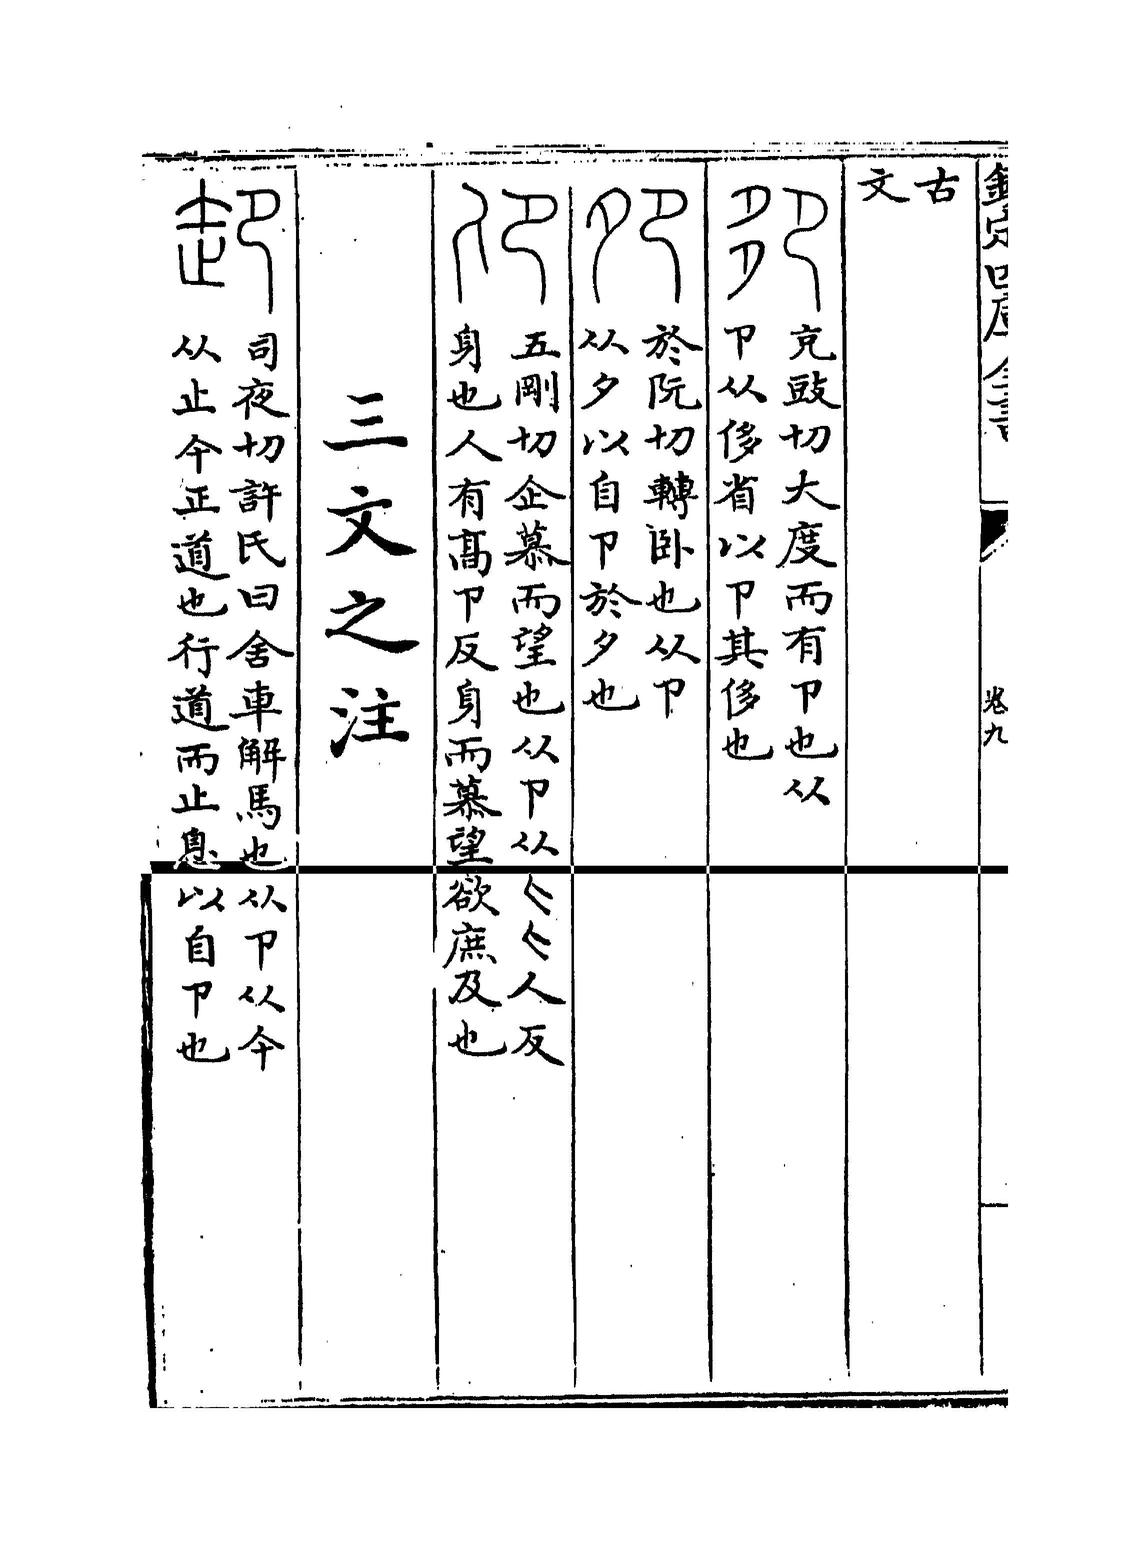 欽定四庫全書
卷九
古
文
充豉切大度而有卩也从
卩从侈省以卩其侈也
於阮切轉卧也从卩
从夕以自卩於夕也
五剛切企慕而望也从卩从匕匕人反
身也人有髙卩反身而慕望欲庶及也
三文之注
司夜切許氏曰舍車解馬也从卩从午
从止午正道也行道而止息以自卩也